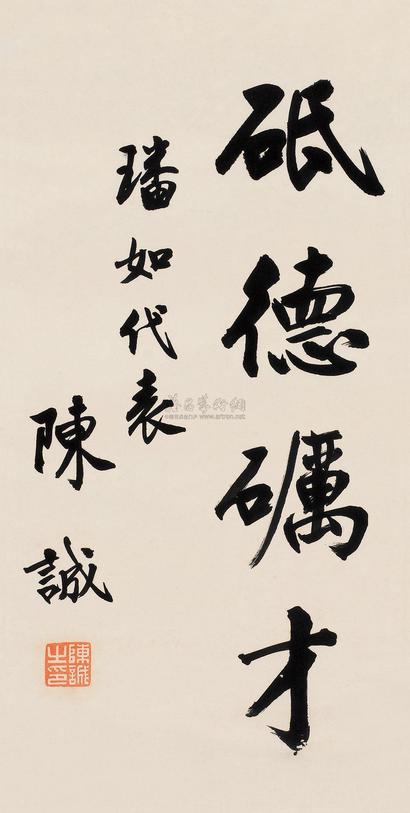 砥德礪才
璠如代表
陳誠
陳誠之印
雅昌藝術網
www.artron.net